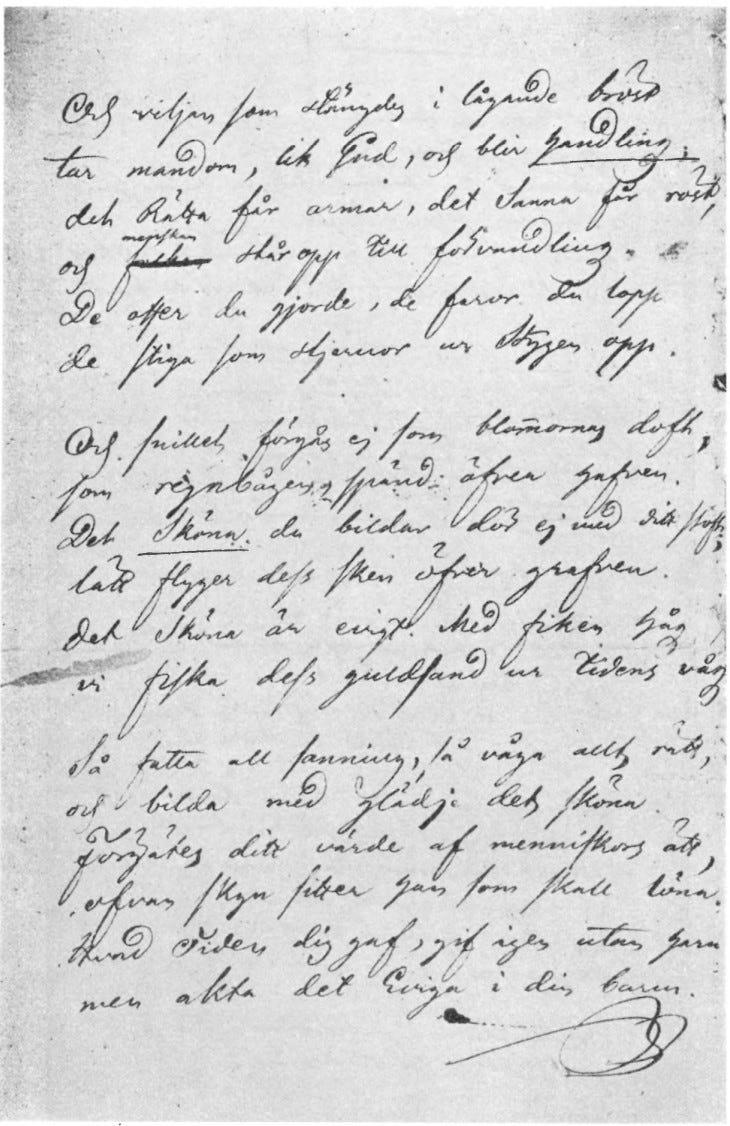 Och viljan som stängdes i lågande bröst
tar mandom, lik Gud, och blir handling;
det Rätta får armar, det Sanna får röst,
menskan
och står opp till förvandling.
De offer du gjorde, de faror du lopp
de stiga som stjernor ur Stygen opp.
Och snillet förgås ej som blom̄ornas doft,
som regnbågens spänd öfver hafven.
Det Sköna du bildar dör ej med ditt stoft;
lätt flyger dess sken öfver grafven.
det Sköna är evigt. Med fiken håg
vi fiska dess guldsand ur tidens våg
Så fatta all sanning, så våga allt rätt,
och bilda med glädje det sköna.
Förgätes ditt värde af menniskors ätt,
ofvan skyn sitter han som skall löna.
Hvad Tiden dig gaf, gif igen utan harm
men akta det Eviga i din barm.